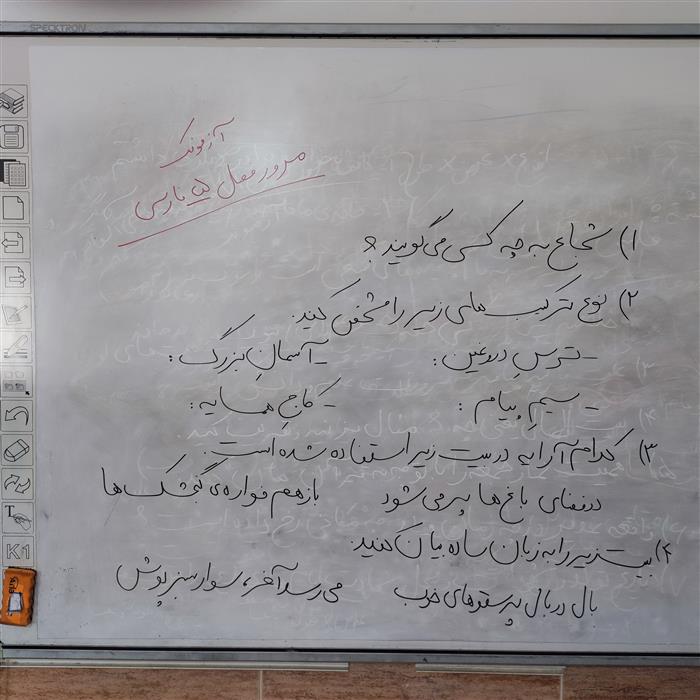 SPECKTRON
آزمونک
مرور فصل ۵ فارسی
۱) شجاع به چه کسی می‌گویند؟
۲) نوع ترکیب های زیر را مشخص کنید.
ـ ترسِ دروغین : ـ آسمانِ بزرگ :
ـ سیمِ پیام : ـ کاجِ همسایه :
۳) کدام آرایه در بیت زیر استفاده شده است.
در فضای باغ‌ها پر می شود باز هم فواره‌ی گنجشک ها
۴) بیت زیر را به زبان ساده بیان کنید.
بال در بال پرستوهای خوب می رسد آخر، سوار سبزپوش
K1